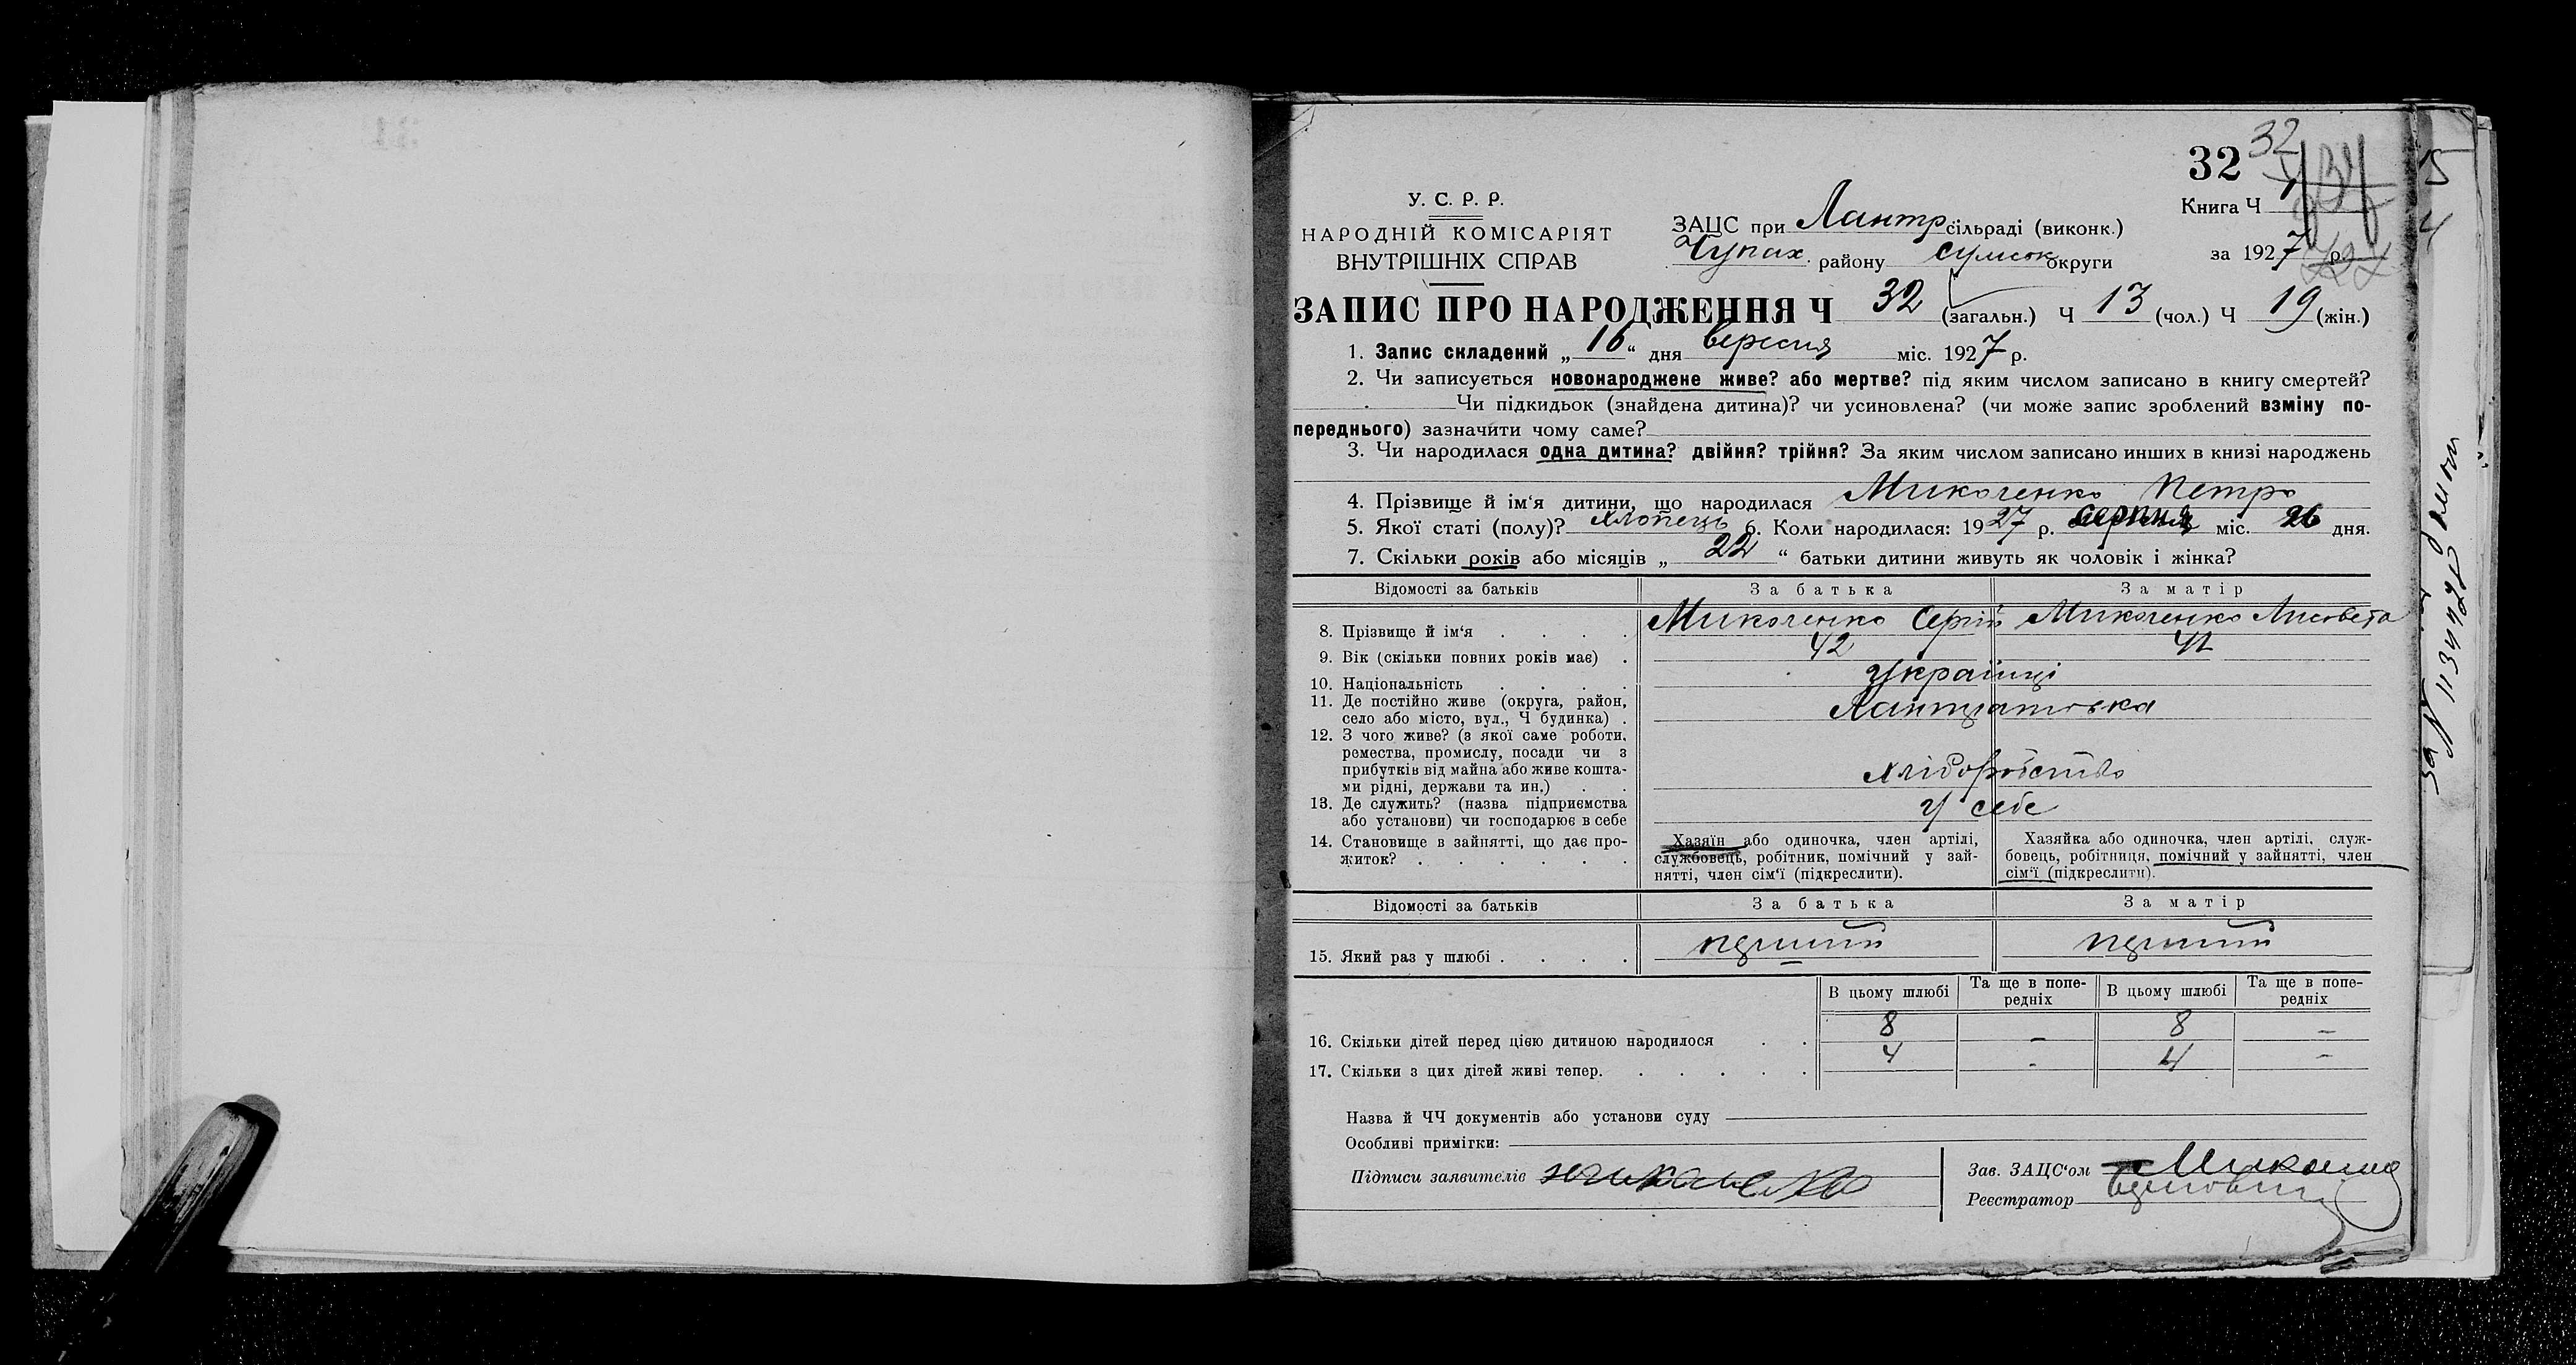 32 32
У. С. Р. Р.
НАРОДНІЙ КОМІСАРІЯТ
ВНУТРІШНІХ СПРАВ
ЗАЦС при Лантр сільраді (виконк.)
Чупах. району Сумськ округи
Книга Ч
за 1927 р.
ЗАПИС ПРО НАРОДЖЕННЯ Ч 32 (загальн.) Ч 13 (чол.) Ч 19 (жін.)
1. Запис складений „16“ дня вересня міс. 1927 р.
2. Чи записується новонароджене живе? або мертве? під яким числом записано в книгу смертей?
Чи підкидьок (знайдена дитина)? чи усиновлена? (чи може запис зроблений взміну по-
переднього) зазначити чому саме?
3. Чи народилася одна дитина? двійня? трійня? За яким числом записано инших в книзі народжень
4. Прізвище й ім‘я дитини, що народилася Миколенко Петро
5. Якої статі (полу)? хлопець 6. Коли народилася: 1927 р. серпня міс. 26 дня.
7. Скільки років або місяців „22“ батьки дитини живуть як чоловік і жінка?
Відомості за батьків За батька За матір
8. Прізвище й ім‘я Миколенко Сергій Миколенко Лисовета
9. Вік (скільки повних років має) 42 42
10. Національність Українці
11. Де постійно живе (округа, район,
село або місто, вул., Ч будинка)
12. З чого живе? (з якої саме роботи,
ремества, промислу, посади чи з
прибутків від майна або живе кошта-
ми рідні, держави та ин.) хліборобство
13. Де служить? (назва підприємства
або установи) чи господарює в себе у себе
14. Становище в зайнятті, що дає про-
житок?
Хазяїн або одиночка, член артілі,
службовець, робітник, помічний у зай-
нятті, член сім‘ї (підкреслити).
Хазяйка або одиночка, член артілі, служ-
бовець, робітниця, помічний у зайнятті, член
сім‘ї (підкреслити).
Відомості за батьків За батька За матір
15. Який раз у шлюбі перший перший
В цьому шлюбі Та ще в попе-
редніх В цьому шлюбі Та ще в попе-
редніх
16. Скільки дітей перед цією дитиною народилося 8 – 8 –
17. Скільки з цих дітей живі тепер. 4 - 4 -
Назва й ЧЧ документів або установи суду
Особливі примітки:
Підписи заявителів
Зав. ЗАЦС‘ом
Реєстратор
15
4